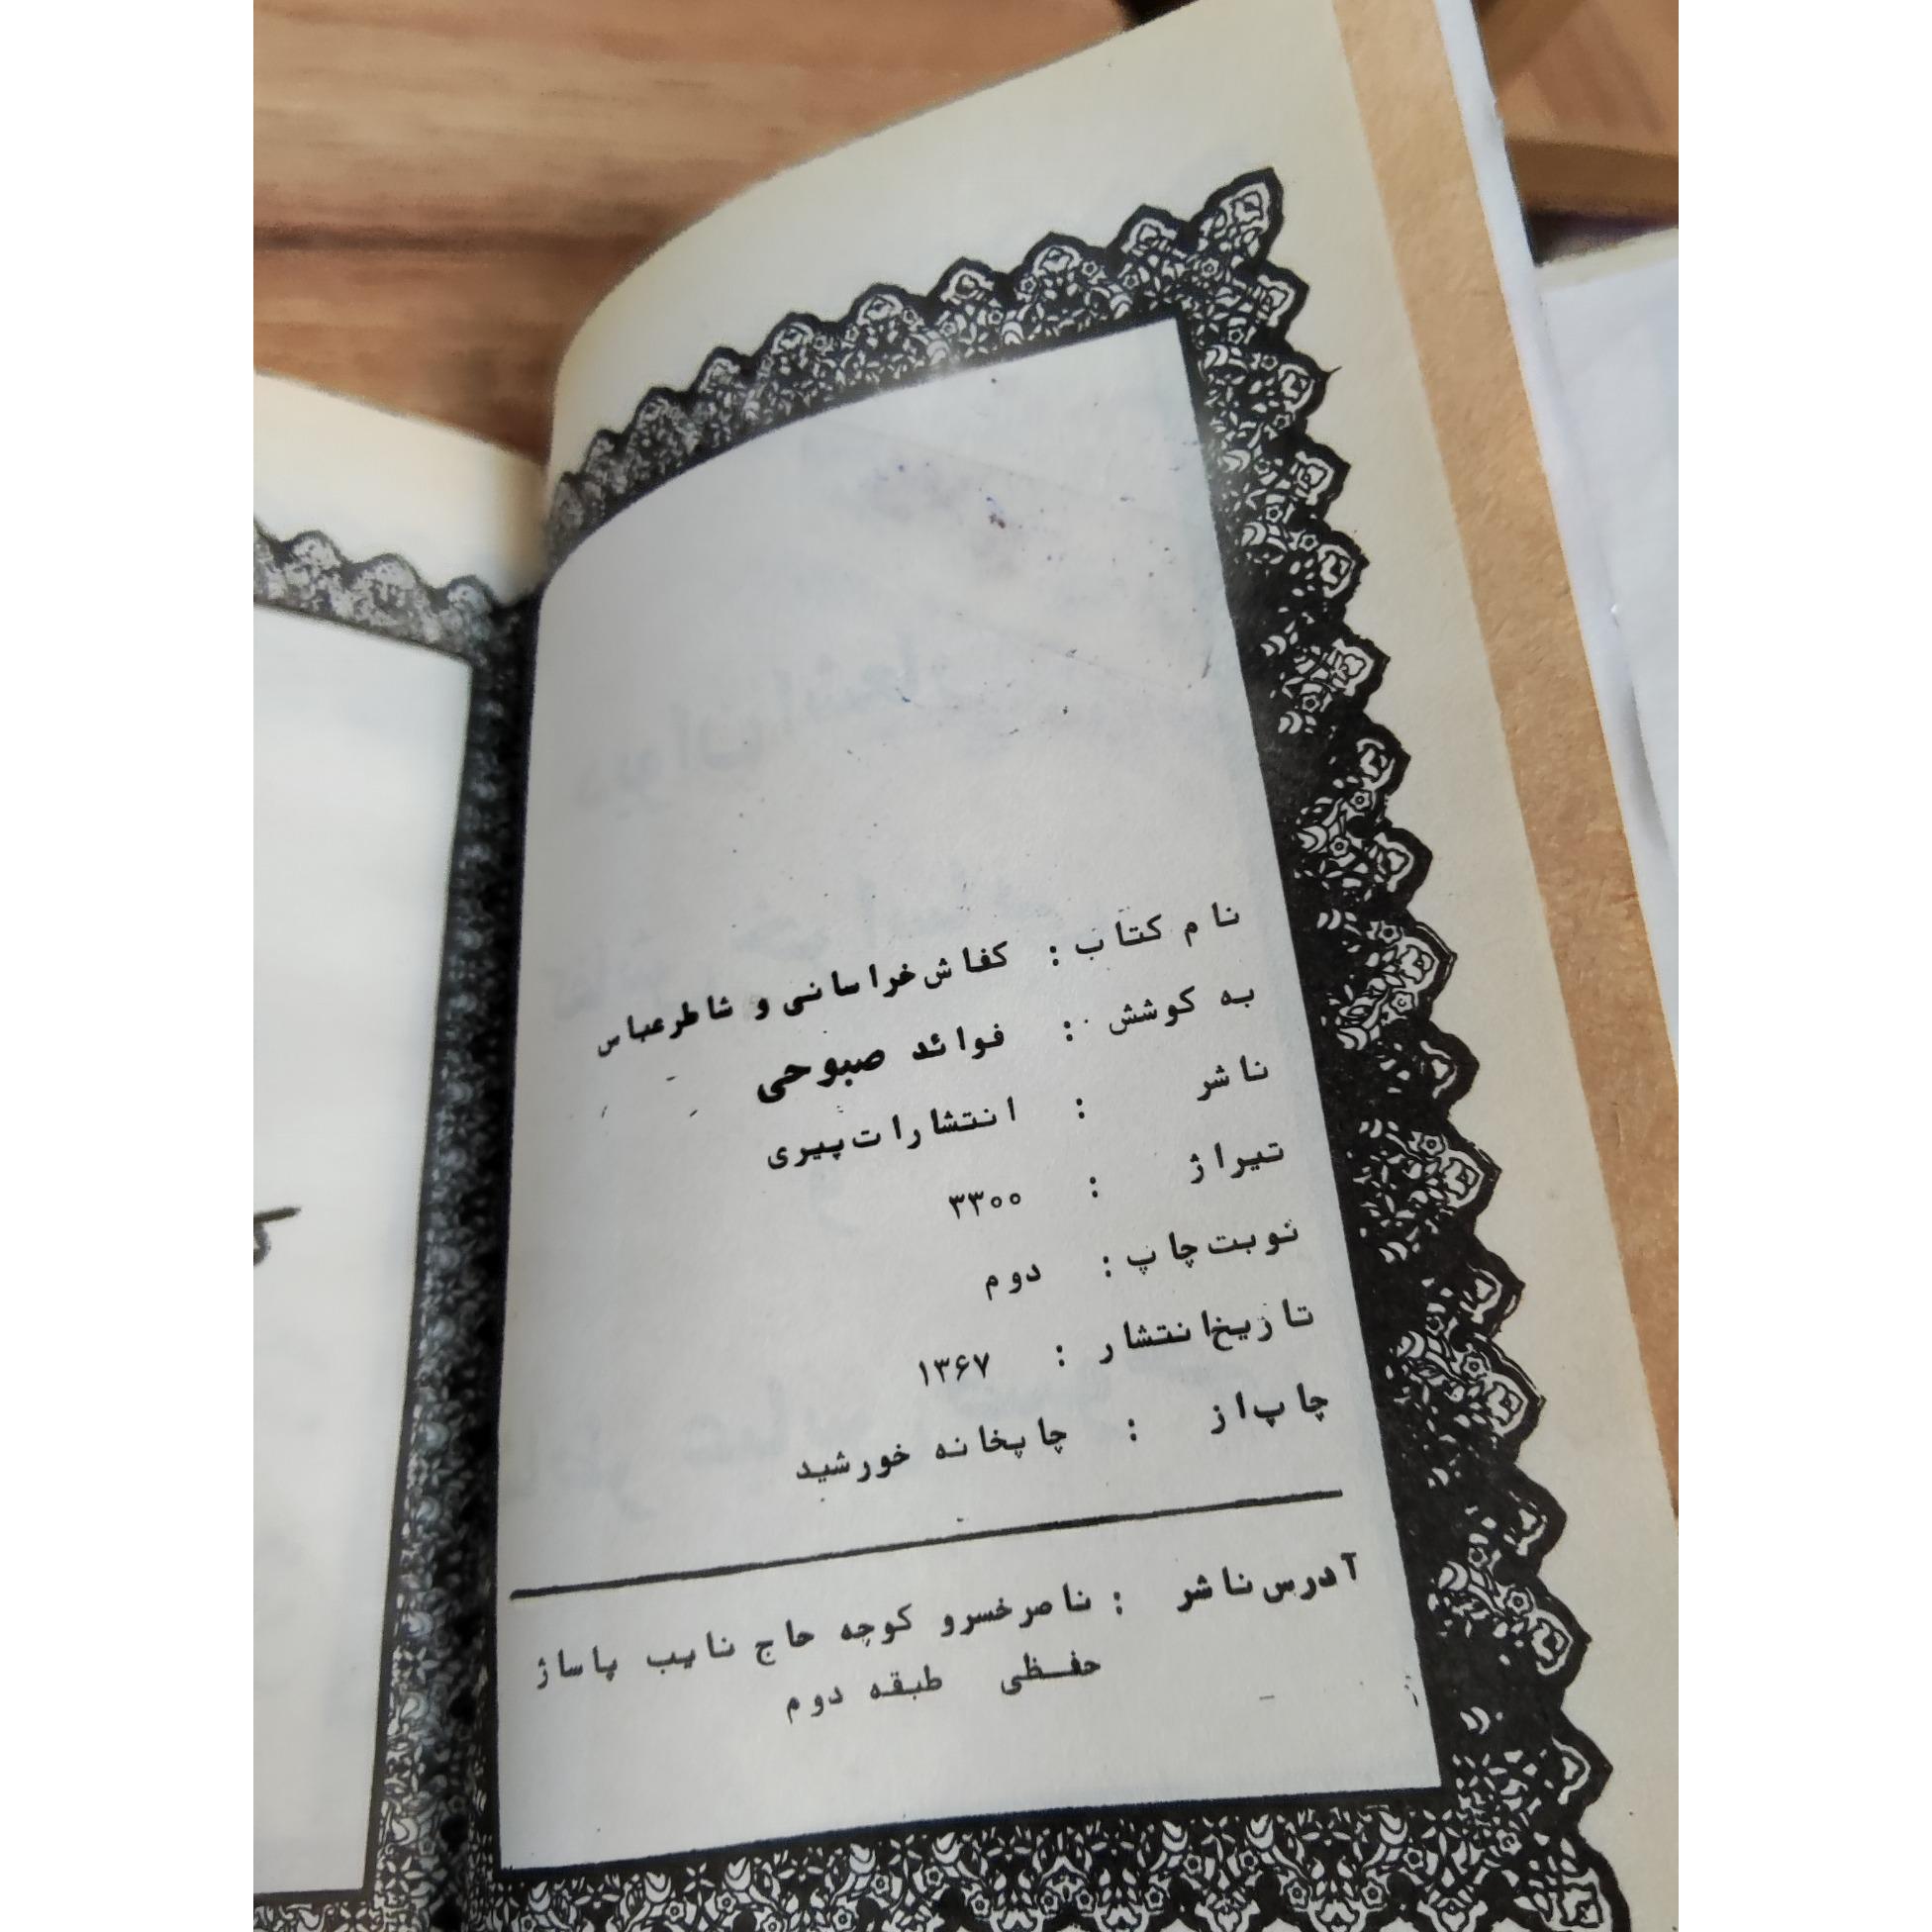 نام کتاب : کفاش خراسانی و شاطرعباس
به کوشش : فوائد صبوحی
ناشر : انتشارات پیری
تیراژ : ۳۳۰۰
نوبت چاپ : دوم
تاریخ انتشار : ۱۳۶۷
چاپ از : چاپخانه خورشید
آدرس ناشر : ناصرخسرو کوچه حاج نایب پاساژ
حفظی طبقه دوم